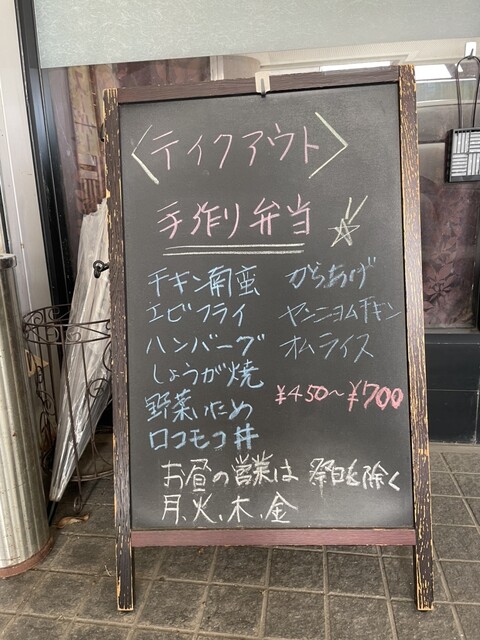 〈テイクアウト〉
手作り弁当
チキン南蛮
エビフライ
ハンバーグ
しょうが焼
野菜いため
ロコモコ丼
からあげ
ヤンニョムチキン
オムライス
¥450〜¥700
お昼の営業は 祭日を除く
月、火、木、金